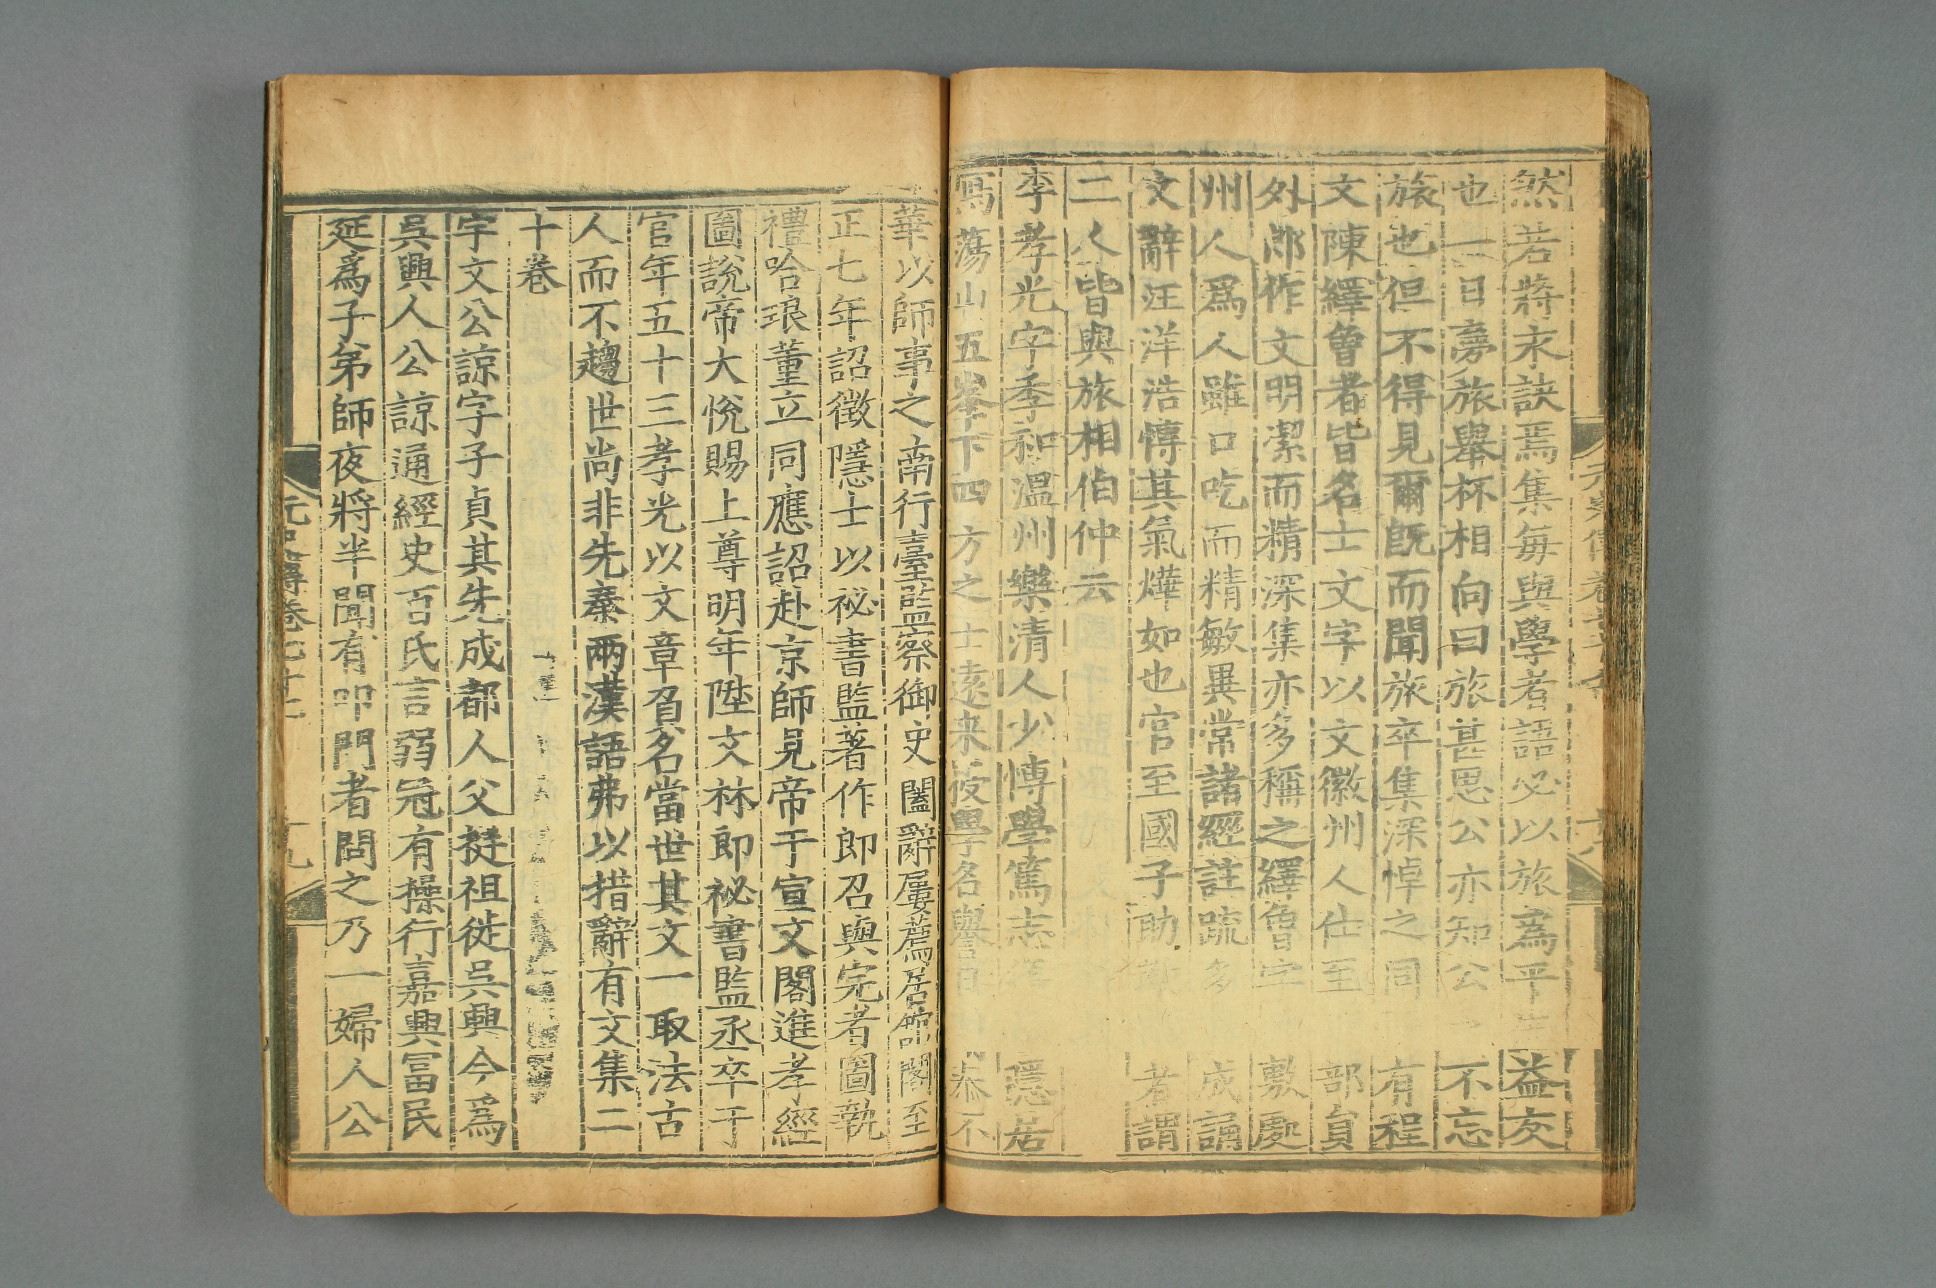 然若將永訣焉集每與學者語必以旅為平生益友
也一日夢旅舉杯相向曰旅甚思公亦知公之不忘
旅也但不得見爾旣而聞旅卒集深悼之同時有程
文陳繹曾者皆名士文字以文徽州人仕至禮部員
外郎作文明潔而精深集亦多稱之繹曾字伯敷處
州人爲人雖口吃而精敏異常諸經註疏多能成誦
文辭汪洋浩愽其氣燁如也官至國子助教論者謂
二人皆與旅相伯仲云
李孝光字季和溫州樂清人少愽學篤志復古隱居
鴈蕩山五峯下四方之士遠来受學名譽日聞泰不
華以師事之南行臺監察御史闔辭屢薦居舘閣至
正七年詔徵隱士以祕書監著作郎召與完者圖執
禮哈琅董立同應詔赴京師見帝于宣文閣進孝經
圖說帝大悅賜上尊明年陞文林郎祕書監丞卒于
官年五十三孝光以文章負名當世其文一取法古
人而不趨世尚非先秦兩漢語弗以措辭有文集二
十卷
宇文公諒字子貞其先成都人父挺祖徙吳興今爲
吳興人公諒通經史百氏言弱冠有操行嘉興冨民
延爲子弟師夜將半聞有叩門者問之乃一婦人公
元史傳卷七十七 十九